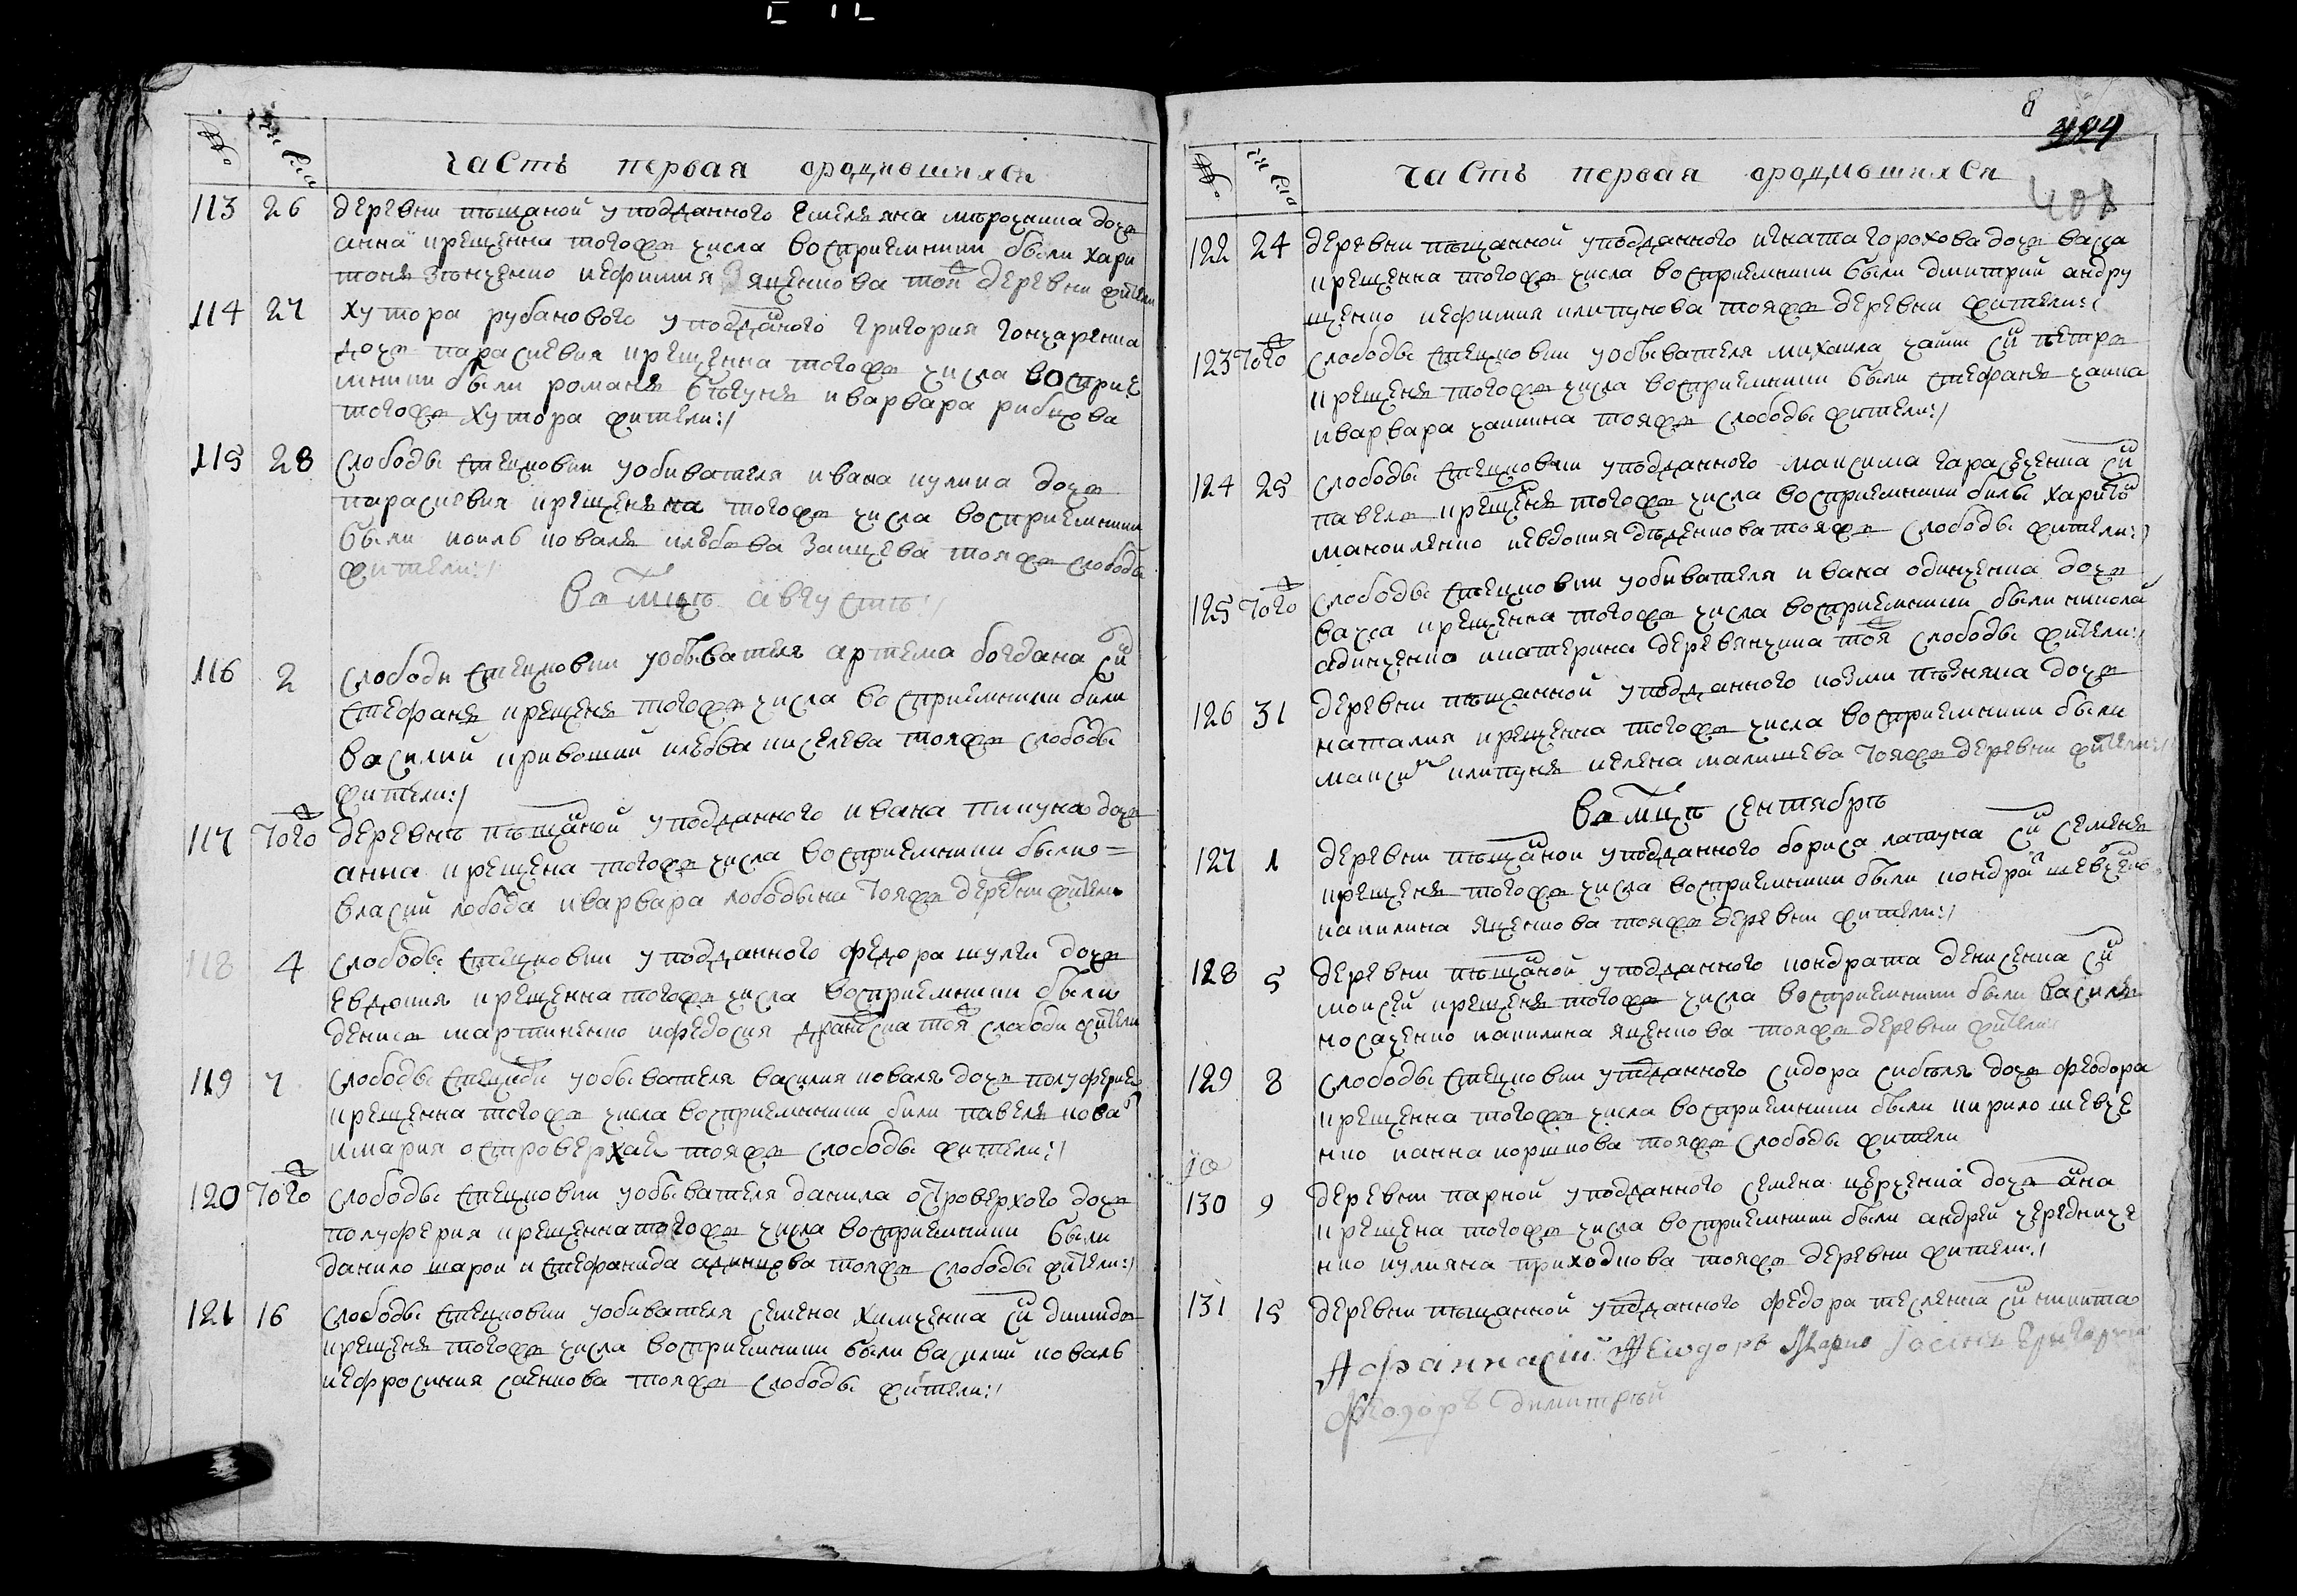 № числа
часть первая ородившихся
113 26 деревни пѣщаной уподданного емелъяна мирошника дочъ
анна крещенна тогожъ числа восприемники были хари
тонъ зѣнченко иефимия яценкова той деревни жители
114 27 хутора рубанового уподданого григория гончаренка
дочъ параскевия крещенна тогожъ числа восприе
мники были романъ бѣгунъ иварвара рибцова
тогожъ хутора жители:/
115 28 слободы стецковки уобивателя ивана кулика дочъ
параскевия крещенъна тогожъ числа восприемники
были коваль илюбва заицева тояжъ слободы
жители:/
въ мцъ августъ:/
116 2 слободи стецковки уобывателя артема богдана снъ
стефанъ крещенъ тогожъ числа восприемники били
василий кривоший илюбва киселева тояжъ слободы
жители:/
117 того деревнъ пѣщаной уподданного ивана пипуна дочъ
анна крещена тогожъ числа восприемники были=
власий лобода иварвара лободына тояжъ деревни жители
118 4 слободы стецковки уподданного федора шулги дочъ
евдокия крещенна тогожъ числа восприемники были
денисъ мартиненко ифедосия тоя слободи жители
119 7 слободы стецковки уобывателя василия коваля дочъ полуферия
крещенна тогожъ числа восприемники били павелъ коваль
имария островерхая тояжъ слободы жители:/
120 того слободы стецковки уобывателя данила островерхого дочъ
полуферия крещенна тогожъ числа восприемники были
данило шарои и стефанида адинцова тояжъ слободы жители:/
121 16 слободы стецковки уобивателя семена химченка снъ димидъ
крещенъ тогожъ числа восприемники были василий коваль
иефросиния саенкова тояжъ слободы жители:/
8
404
408
№ числа
часть первая ородившихся
122 24 деревни пѣщанной уподданного игната горохова дочъ васса
крещенна тогожъ числа восприемники были дмитрий андру
щенко иефимия клипунова тояжъ деревни жители:/
123 того слободы стецковки уобывателя михаила чайки снъ петръ
крещенъ тогожъ числа восприемники были стефанъ чаика
иварвара чаикина тояжъ слободы жители:/
124 25 слободы стецковки уподданного максима гарасеченка снъ
павелъ крещенъ тогожъ числа восприемники били харитонъ
манойленко иевдокия дѣденкова тояжъ слободы жители:/
125 того слободы стецковки уобивателя ивана одинченка дочъ
васса крещенна тогожъ числа восприемники были николай
адинченко икатерина деревянчина тоя слободы жители:/
126 31 деревни пѣщанной уподданного козми пѣзняка дочъ
наталия крещенна тогожъ числа восприемники были
максимъ клипунъ иелена малишева тояжъ деревни жители:/
въ мцъ сентябръ
127 1 деревни пѣщаной уподданного бориса латуна снъ семенъ
крещенъ тогожъ числа восприемники были кондрат шевченко
иакилина яценкова тояжъ деревни жители:/
128 5 деревни пѣщаной уподданного кондрата денисенка снъ
моисей крещенъ тогожъ числа восприемники были василь
носаченко иакилина яценкова тояжъ деревни жители:/
129 8 слободы стецковки уподданного сидора сиѣбля дочъ феодора
крещенна тогожъ числа восприемники были кирило шевче
нко ианна коршкова тояжъ слободы жители
130 9 деревни парной уподданного семена церченка дочъ анна
крещена тогожъ числа восприемники были андрей чередниче
нко иулияна приходкова тояжъ деревни жители:/
131 15 деревни пѣщанной уподданного федора тесленка снъ никита
Афанасій Феодоръ Марко Іосифъ Григорий
Феодоръ димитрий